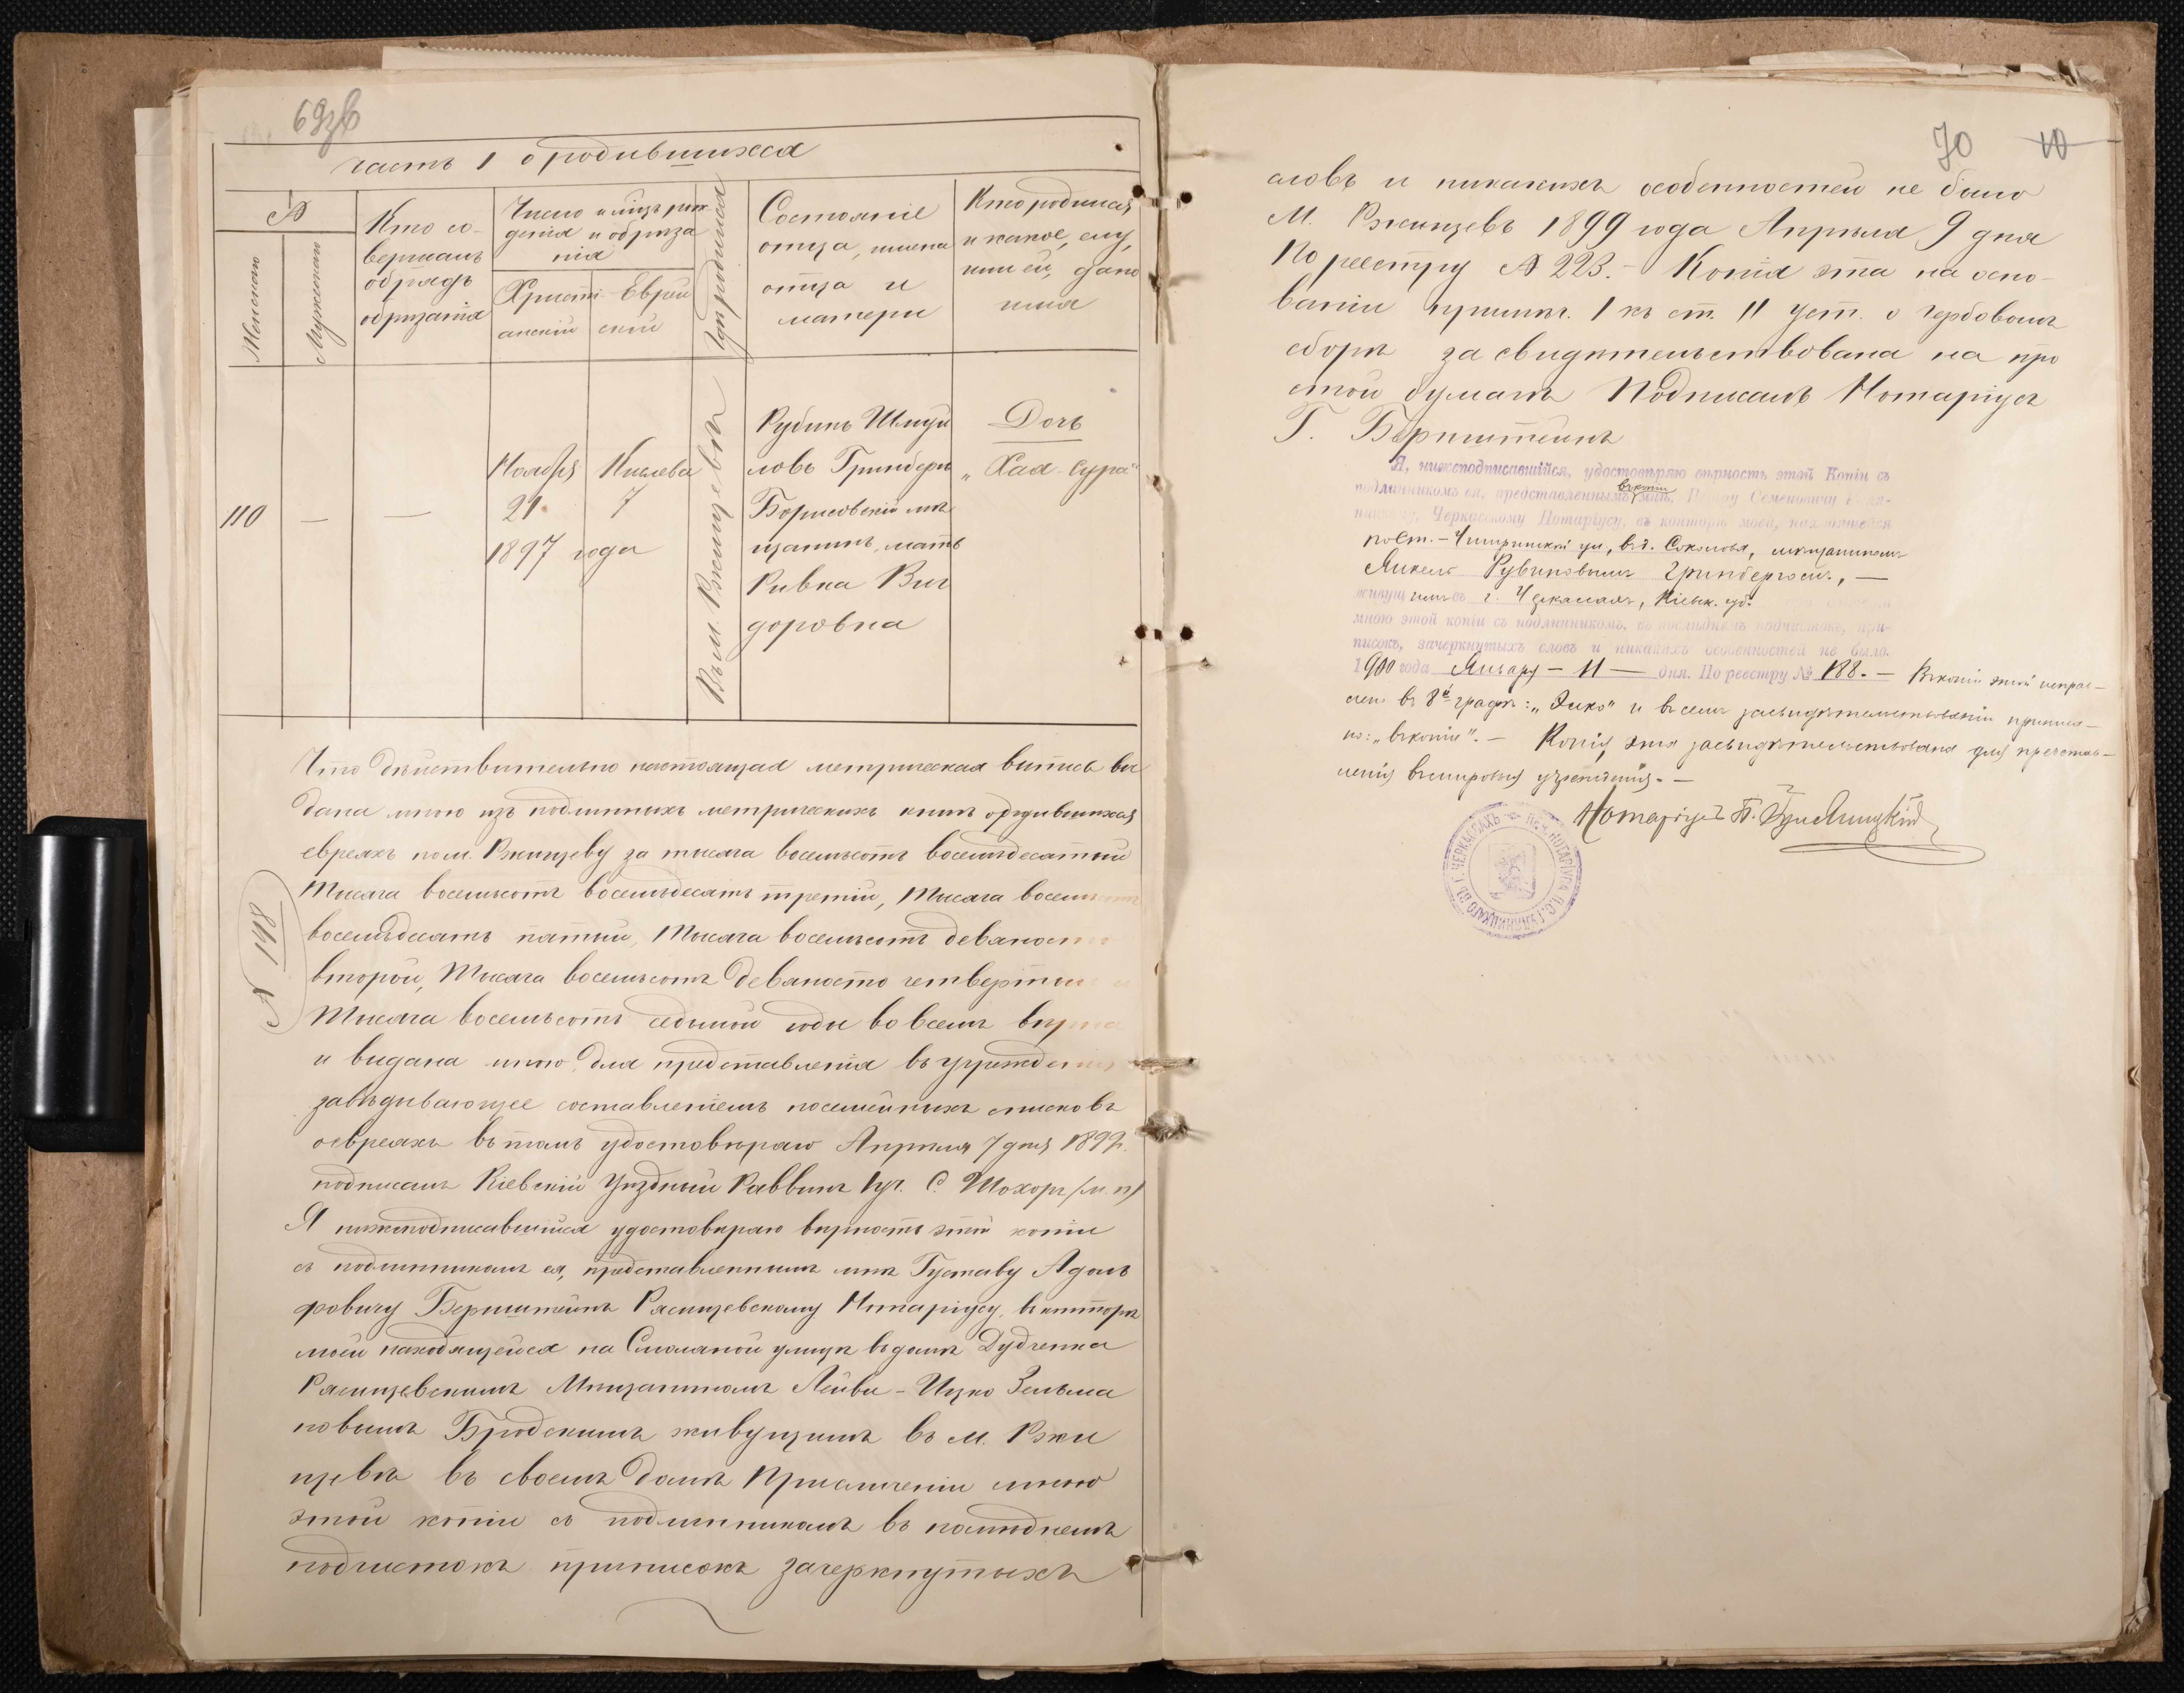 69зв
часть I о родившихся
№
Женскаго
Мужескаго
Кто со-
вершалъ
обрядъ
обрѣзанія
Число и мѣц. рож-
денія и обрѣза
нія
Христі-
анскій
Еврей
ской
Гдѣ родился
Состояніе
отца, имена
отца и
матери
Кто родился
и какое, ему,
или ей, дано
имя
110
—
—
Ноября
21
1897 года
Кислева
7
Въ м. Ржищевѣ
Рубинъ Шмуй
ловъ Гринберъ
Борисовскій мѣ
щанинъ, мать
Ривка Виг
доровна
Дочь
„Хая-Сура"
Что дѣйствительно настоящая метрическая выпись вы
дана мною изъ подлинныхъ метрическихъ книгъ о родившихся
евреяхъ по м. Ржищеву за тысяча восемьсотъ восемьдесятый
Тысяча восемьсотъ восемьдесятъ третій, Тысяча восемьсотъ
восемьдесятъ пятый, Тысяча восемьсотъ девяносто
второй, Тысяча восемьсотъ девяносто четвертый и
Тысяча восемьсотъ седьмой годы во всемъ вѣрна
и выдана мною для представленія въ учрежденія
завѣдывающее составленіемъ посемейныхъ списковъ
о евреяхъ въ томъ удостовѣряю Апрѣля 7 дня 1899 г.
подписалъ Кіевскій Уѣздный Раввинъ С. Шохоръ /м. п/
№ 148
Я нижеподписавшійся удостовѣряю вѣрность этой копіи
съ подлинникомъ ея, представленнымъ мнѣ Густаву Адоль
фовичу Бернштейнъ Ржищевскому Нотаріусу, въ конторѣ
моей находящейся на Смоляной улицѣ въ домѣ Дудченка
Ржищевскимъ Мѣщаниномъ Лейви-Ицко Зельма
новымъ Бродскимъ живущимъ въ м. Ржи
щевѣ въ своемъ домѣ При сличеніи мною
этой копіи съ подлинникомъ въ послѣднемъ
подчистокъ приписокъ зачеркнутыхъ
70 10
словъ и никакихъ особенностей не было
М. Ржищевъ 1899 года Апрѣля 9 дня
По реестру № 223.- Копія эта на осно-
ваніи примѣч. 1 къ ст. 11 уст. о гербовомъ
сборѣ засвидѣтельствована на про
стой бумагѣ Подписалъ Нотаріусъ
Г. Бернштейнъ
Я, нижеподписавшійся, удостовѣряю вѣрность этой Копіи съ
въ копіи
подлинникомъ ея, представленнымъ мнѣ, Петру Семеновичу Гуля-
ницкому, Черкасскому Нотаріусу, въ конторѣ моей, находящейся
по Ст.-Чигиринской ул, въ д. Соколова, мѣщаниномъ
Янкель Рувиновымъ Гринбергомъ, —
живущимъ въ г. Черкассахъ, Кіевск. губ.
мною этой копіи съ подлинникомъ, въ послѣднемъ подчистокъ, при-
писокъ, зачеркнутыхъ словъ и никакихъ особенностей не было.
1900 года Января — 11 — дня. По реестру № 188. — Въ копіи этой исправ-
лено въ 8й графѣ: „Эико" и въ семъ засвидѣтельствованіи приписа-
но: „въ копіи". — Копія эта засвидѣтельствована для представ-
ленія въ мировыя учрежденія. —
Нотаріусъ П. Гуляницкій
ПЕЧ. НОТАРІУСА П. С. ГУЛЯНИЦКАГО ВЪ Г. ЧЕРКАССАХЪ